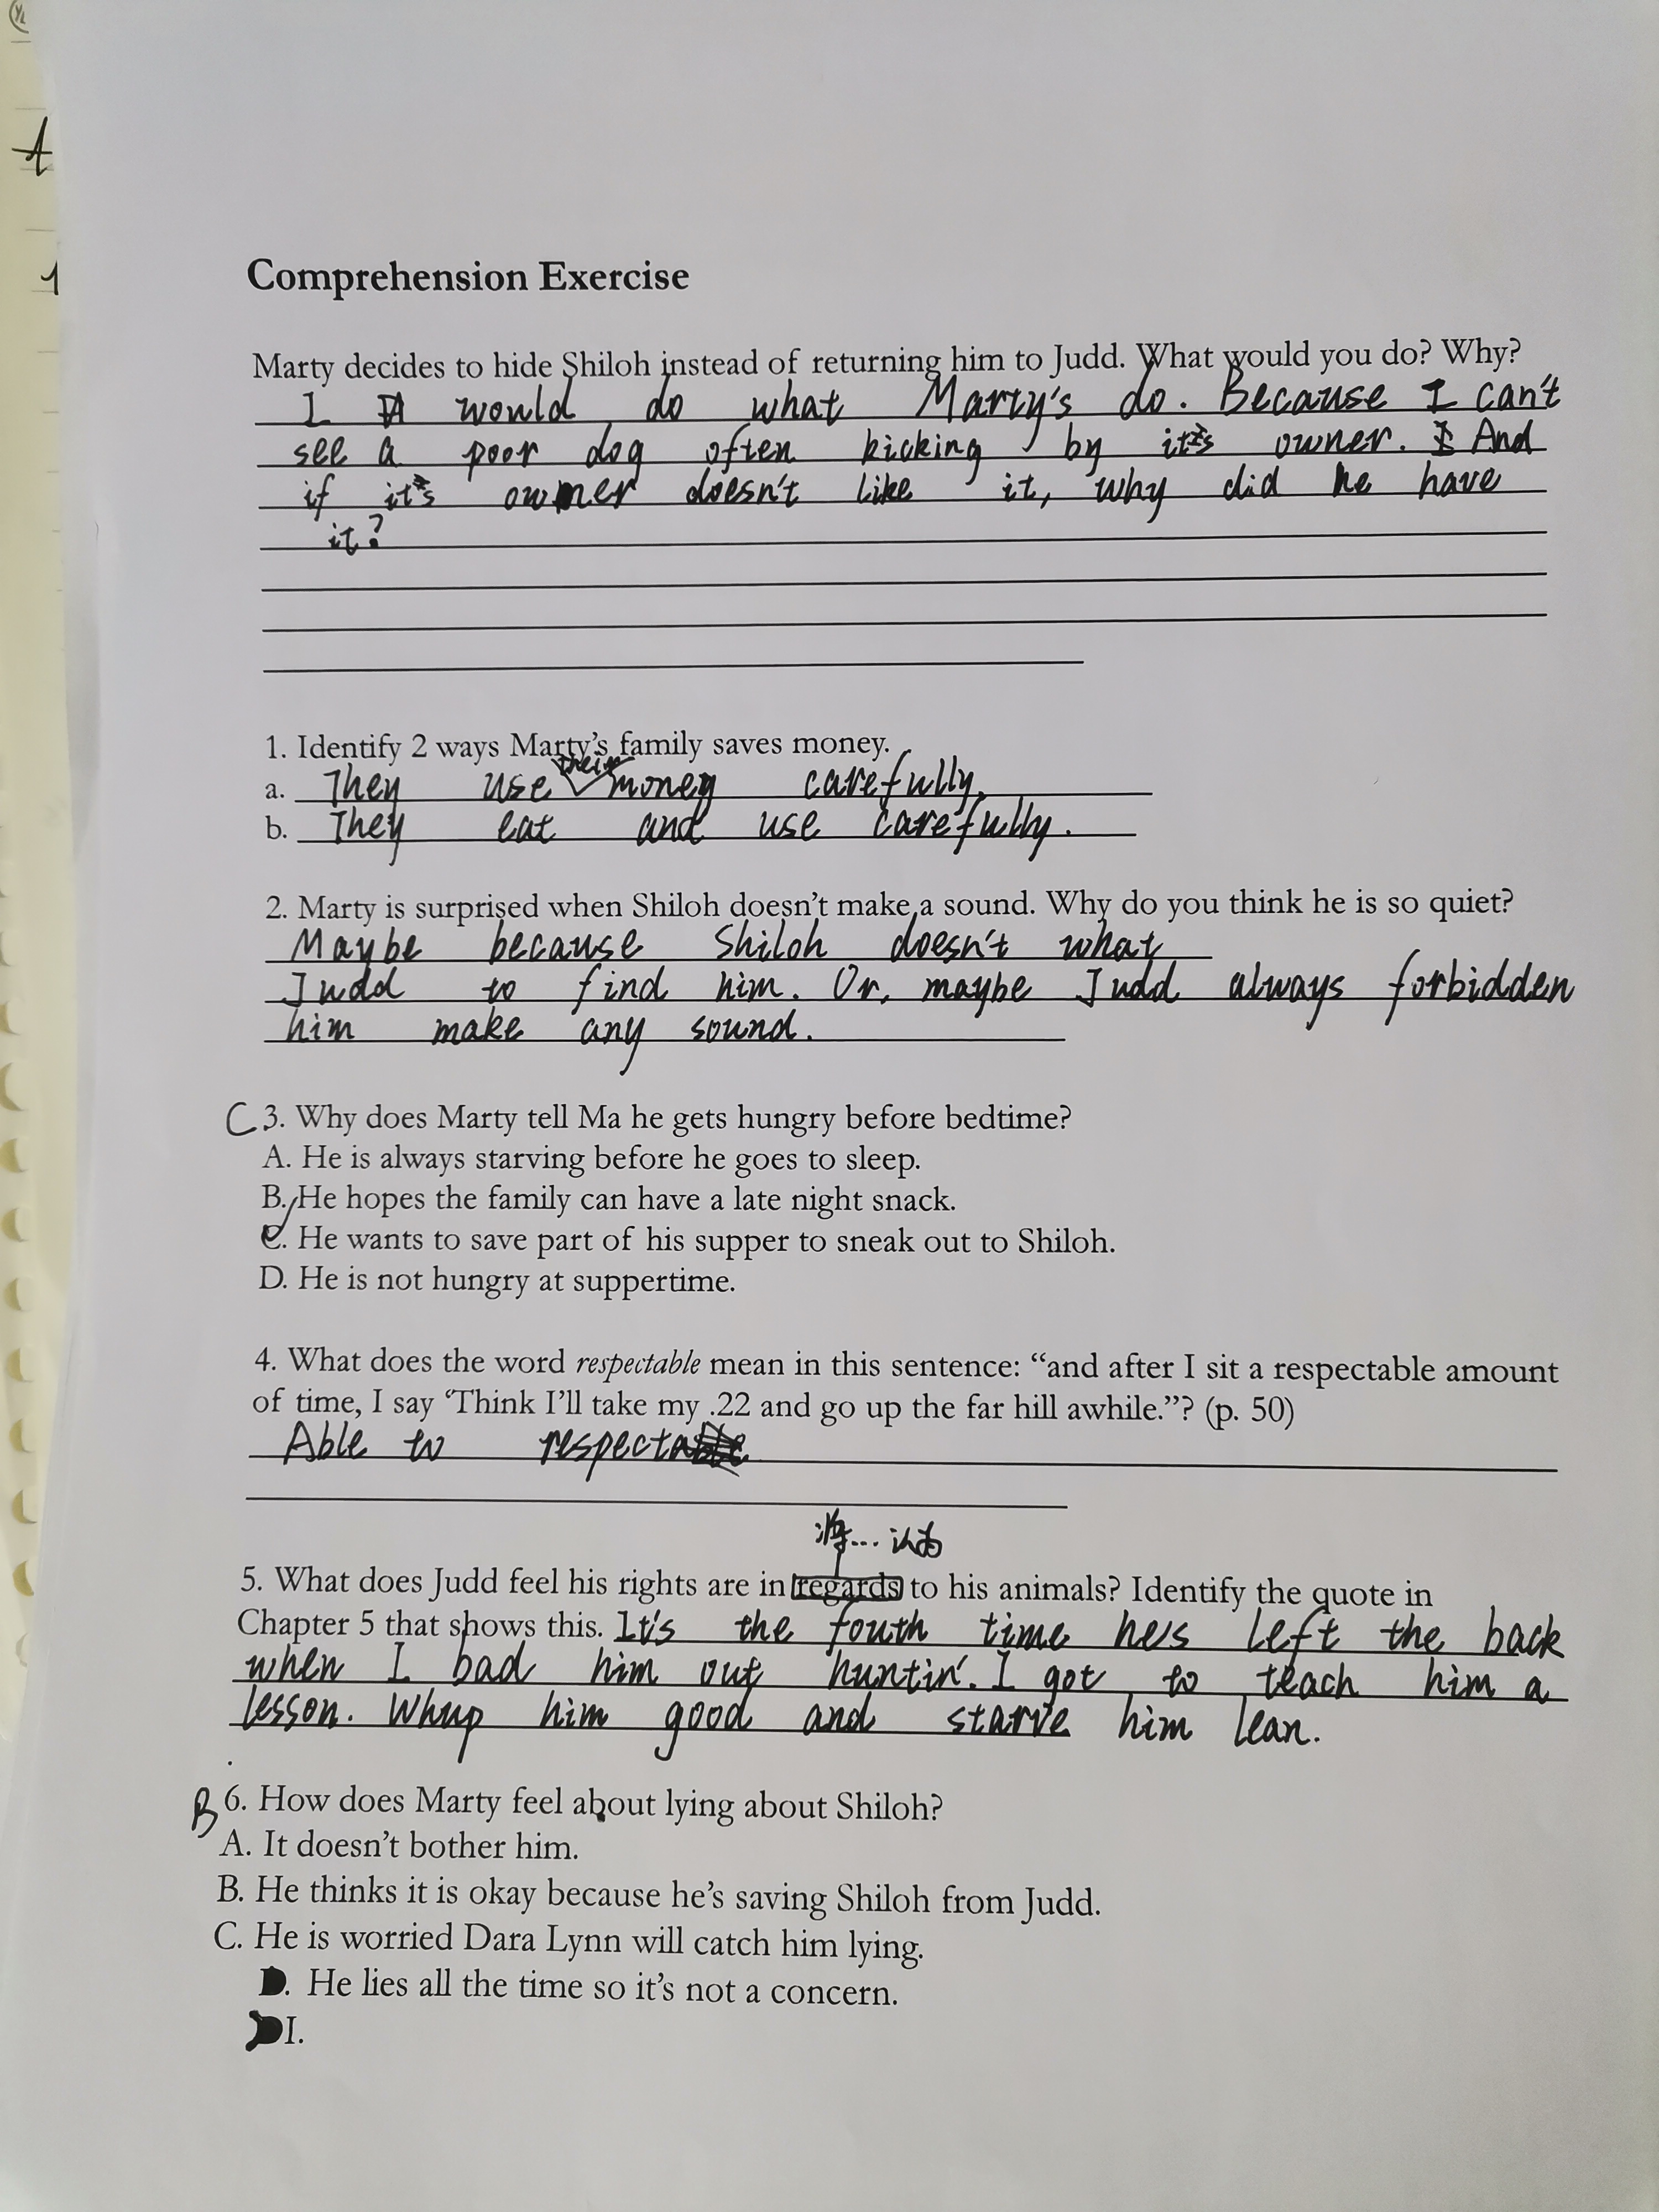 Comprehension Exercise
Marty decides to hide Shiloh instead of returning him to Judd. What would you do? Why?
I would do what Marty's do. Because I can't
see a poor dog often kicking by its owner. And
if it's owner doesn't like it, why did he have
it?
1. Identify 2 ways Marty's family saves money.
a. They use their money carefully.
b. They eat and use carefully.
2. Marty is surprised when Shiloh doesn't make a sound. Why do you think he is so quiet?
Maybe because Shiloh doesn't what
Judd to find him. Or, maybe Judd always forbidden
him make any sound.
C 3. Why does Marty tell Ma he gets hungry before bedtime?
A. He is always starving before he goes to sleep.
B. He hopes the family can have a late night snack.
C. He wants to save part of his supper to sneak out to Shiloh.
D. He is not hungry at suppertime.
4. What does the word respectable mean in this sentence: “and after I sit a respectable amount
of time, I say ‘Think I’ll take my .22 and go up the far hill awhile.”? (p. 50)
Able to respect
将... 认为
5. What does Judd feel his rights are in regards to his animals? Identify the quote in
Chapter 5 that shows this. It's the fouth time he's left the back
when I bad him out huntin'. I got to teach him a
lesson. Whup him good and starve him lean.
B 6. How does Marty feel about lying about Shiloh?
A. It doesn't bother him.
B. He thinks it is okay because he's saving Shiloh from Judd.
C. He is worried Dara Lynn will catch him lying.
D. He lies all the time so it's not a concern.
I.